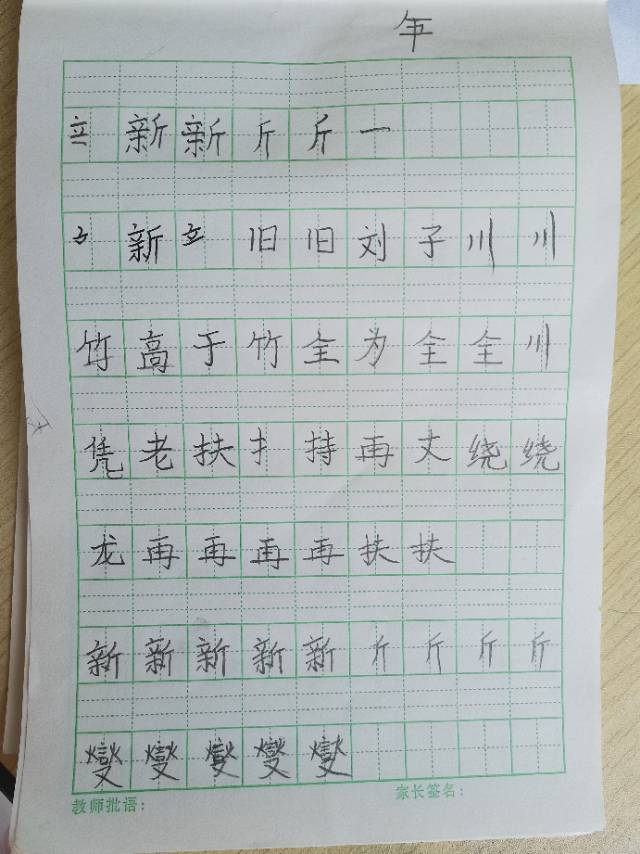 年
立 新 新 斤 斤 一
新 立 旧 旧 刘 子 川 川
竹 高 于 竹 全 为 全 全 川
凭 老 扶 扌 持 再 丈 绕 绕
龙 再 再 再 再 扶 扶
新 新 新 新 新 斤 斤 斤 斤
燮 燮 燮 燮 燮
教师批语： 家长签名：